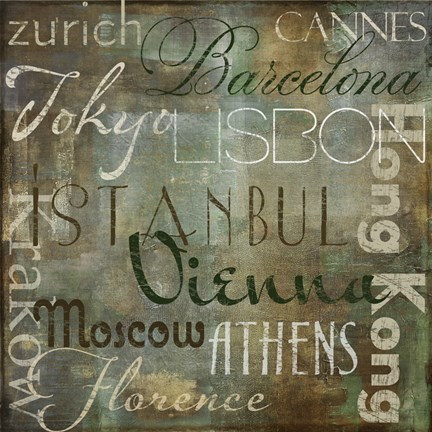 zurich
CANNES
Barcelona
Tokyo
LISBON
Hong Kong
İSTANBUL
Krakow
Vienna
Moscow
ATHENS
Florence